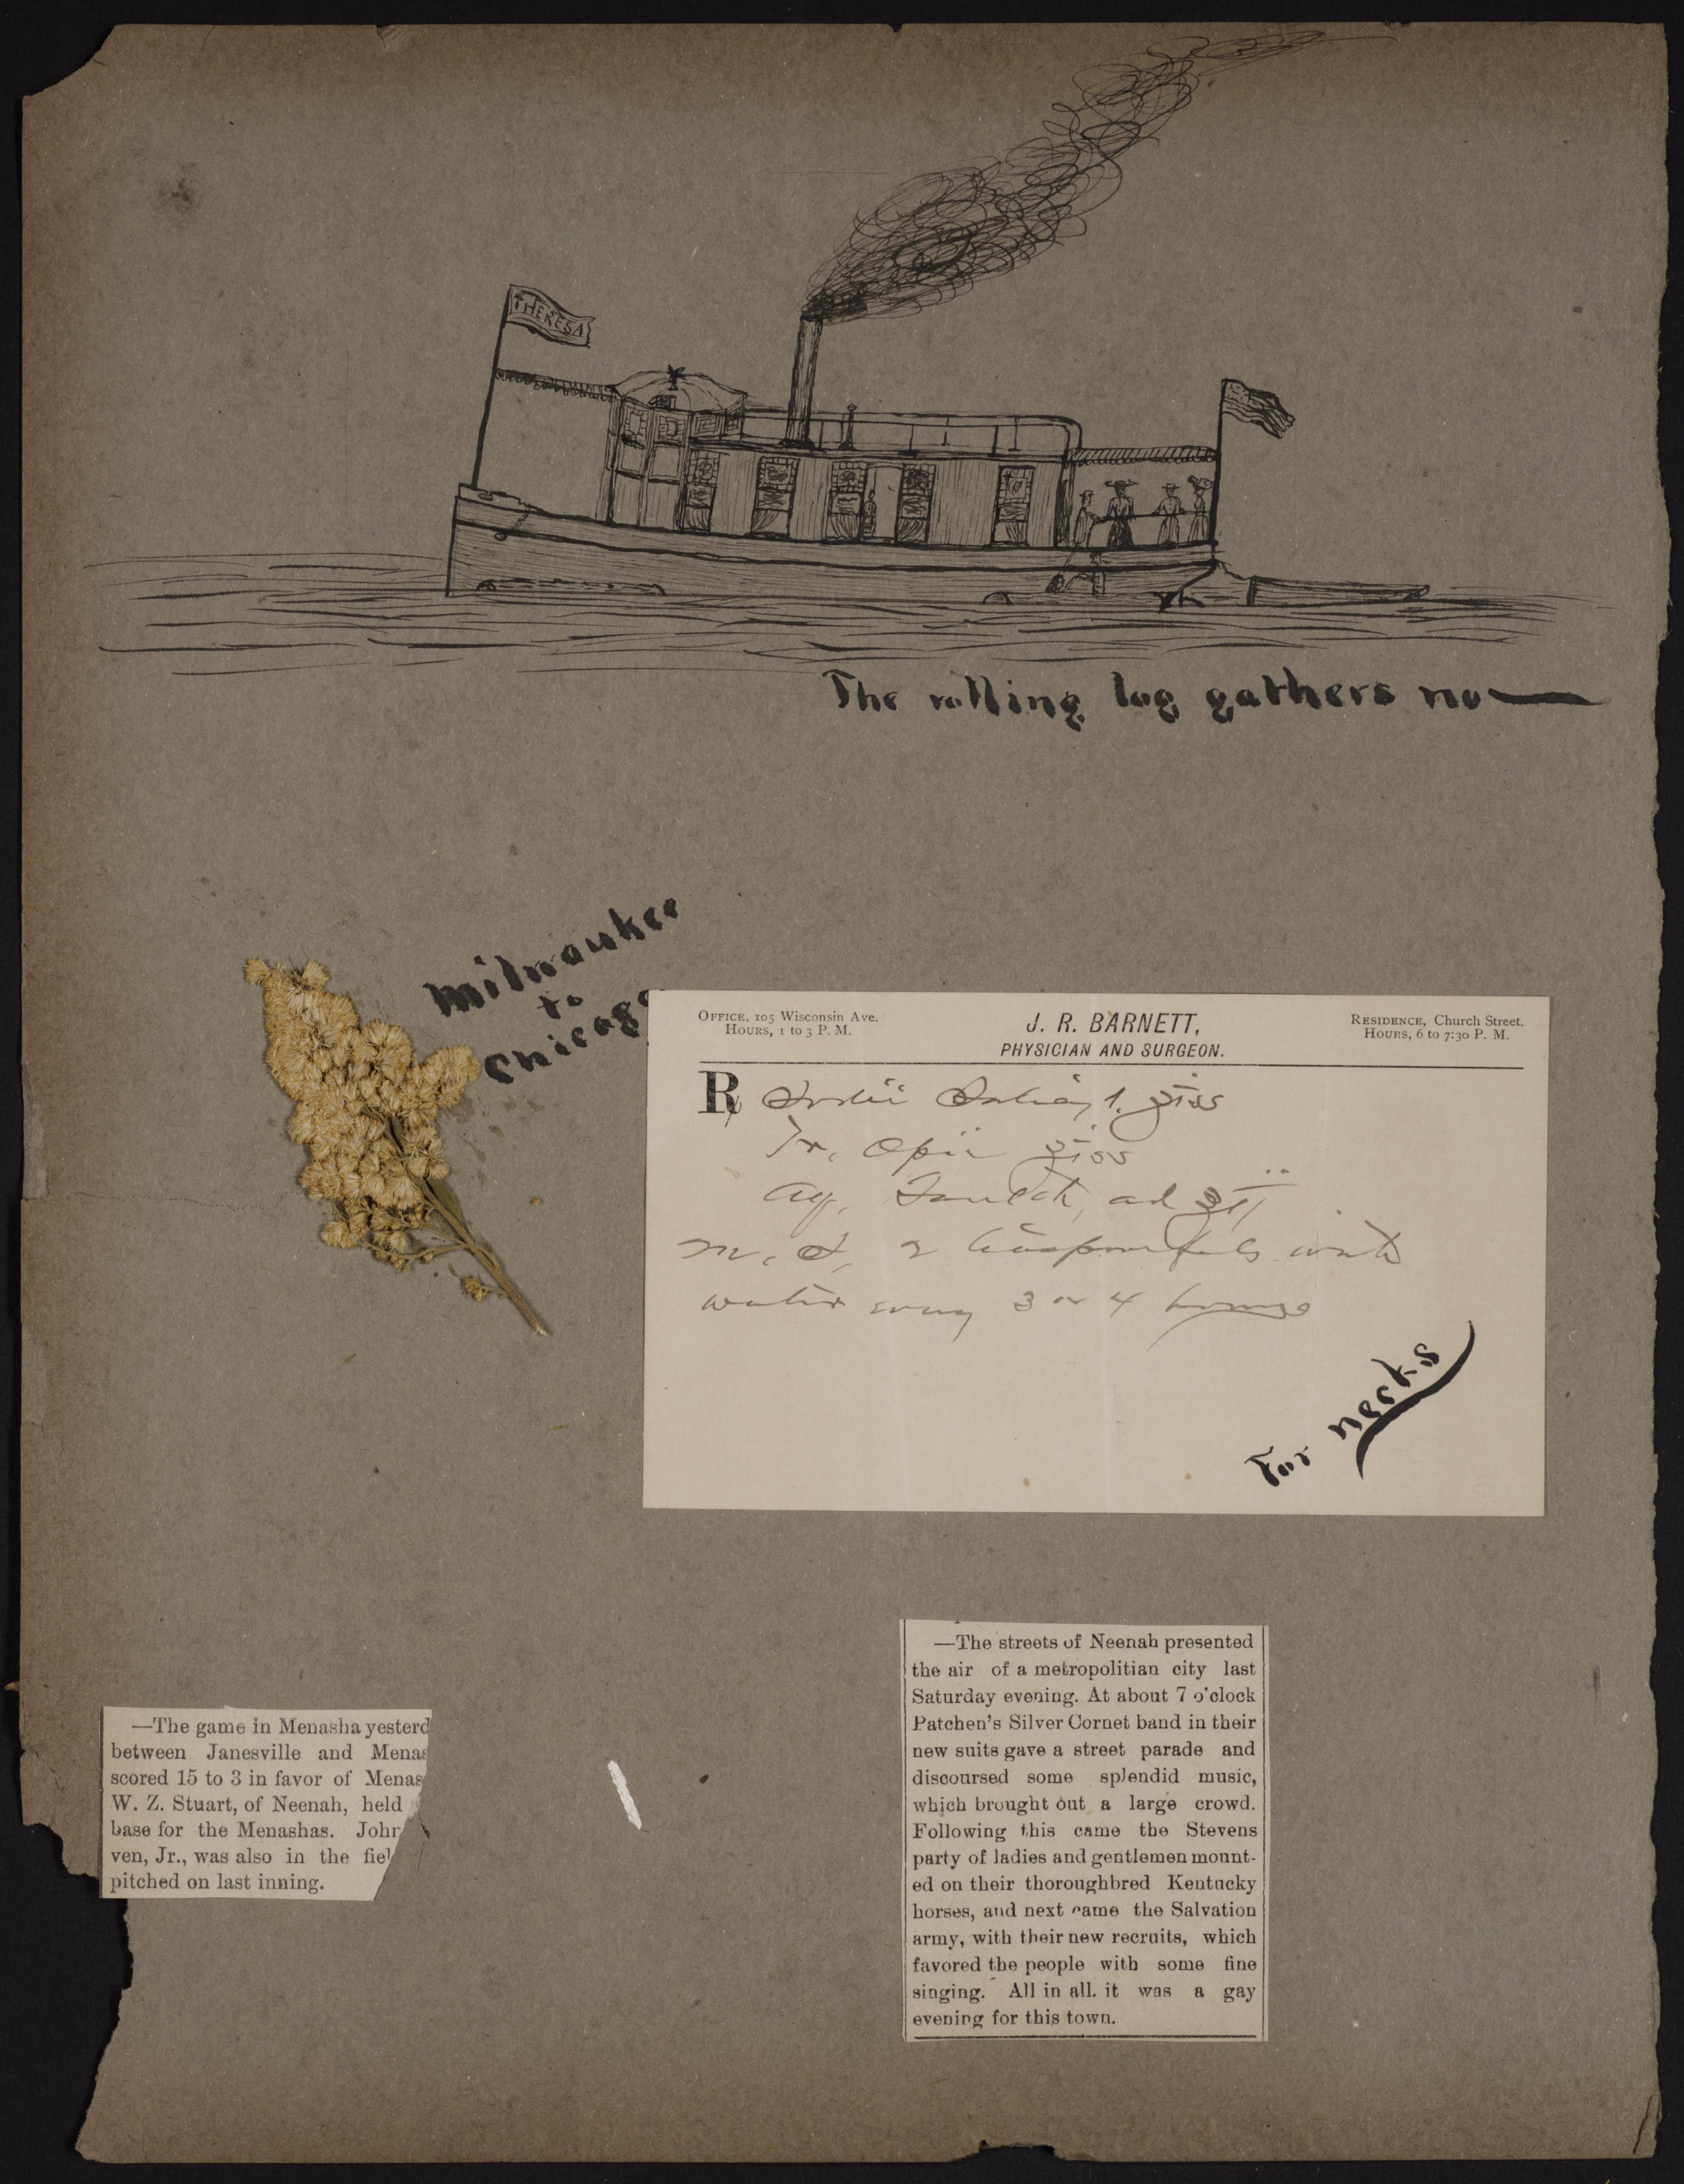 THERESA
The rolling log gathers no—
Milwaukee
to
Chicago
OFFICE, 105 Wisconsin Ave.
HOURS, 1 to 3 P. M.
J. R. BARNETT,
PHYSICIAN AND SURGEON.
RESIDENCE, Church Street.
HOURS, 6 to 7:30 P. M.
R
Tr. Opii ʒiss
Aq. ad ℥ij
M. S. 2 teaspoonfuls with
water every 3 or 4 hours
For necks
—The game in Menasha yesterd
between Janesville and Menas
scored 15 to 3 in favor of Menas
W. Z. Stuart, of Neenah, held
base for the Menashas. John
ven, Jr., was also in the fiel
pitched on last inning.
—The streets of Neenah presented
the air of a metropolitian city last
Saturday evening. At about 7 o'clock
Patchen's Silver Cornet band in their
new suits gave a street parade and
discoursed some splendid music,
which brought out a large crowd.
Following this came the Stevens
party of ladies and gentlemen mount-
ed on their thoroughbred Kentucky
horses, and next came the Salvation
army, with their new recruits, which
favored the people with some fine
singing. All in all. it was a gay
evening for this town.